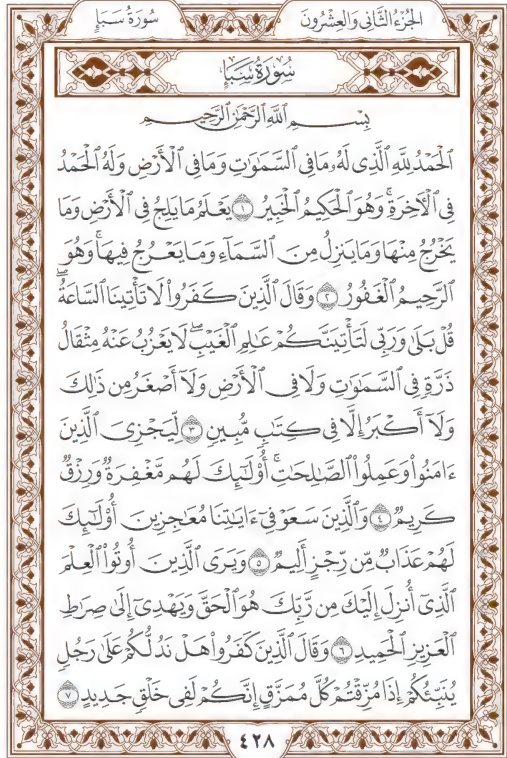 الجزء الثاني والعشرون
سورة سبإ
سُورَةُ سَبَإٍ
بِسْمِ ٱللَّهِ ٱلرَّحْمَٰنِ ٱلرَّحِيمِ
ٱلْحَمْدُ لِلَّهِ ٱلَّذِى لَهُۥ مَا فِى ٱلسَّمَٰوَٰتِ وَمَا فِى ٱلْأَرْضِ وَلَهُ ٱلْحَمْدُ
فِى ٱلْأَخِرَةِ ۚ وَهُوَ ٱلْحَكِيمُ ٱلْخَبِيرُ ١ يَعْلَمُ مَا يَلِجُ فِى ٱلْأَرْضِ وَمَا
يَخْرُجُ مِنْهَا وَمَا يَنزِلُ مِنَ ٱلسَّمَآءِ وَمَا يَعْرُجُ فِيهَا ۚ وَهُوَ
ٱلرَّحِيمُ ٱلْغَفُورُ ٢ وَقَالَ ٱلَّذِينَ كَفَرُوا۟ لَا تَأْتِينَا ٱلسَّاعَةُ ۖ
قُلْ بَلَىٰ وَرَبِّى لَتَأْتِيَنَّكُمْ عَٰلِمِ ٱلْغَيْبِ ۖ لَا يَعْزُبُ عَنْهُ مِثْقَالُ
ذَرَّةٍ فِى ٱلسَّمَٰوَٰتِ وَلَا فِى ٱلْأَرْضِ وَلَآ أَصْغَرُ مِن ذَٰلِكَ
وَلَآ أَكْبَرُ إِلَّا فِى كِتَٰبٍ مُّبِينٍ ٣ لِّيَجْزِىَ ٱلَّذِينَ
ءَامَنُوا۟ وَعَمِلُوا۟ ٱلصَّٰلِحَٰتِ ۚ أُو۟لَٰٓئِكَ لَهُم مَّغْفِرَةٌ وَرِزْقٌ
كَرِيمٌ ٤ وَٱلَّذِينَ سَعَوْ فِىٓ ءَايَٰتِنَا مُعَٰجِزِينَ أُو۟لَٰٓئِكَ
لَهُمْ عَذَابٌ مِّن رِّجْزٍ أَلِيمٌ ٥ وَيَرَى ٱلَّذِينَ أُوتُوا۟ ٱلْعِلْمَ
ٱلَّذِىٓ أُنزِلَ إِلَيْكَ مِن رَّبِّكَ هُوَ ٱلْحَقَّ وَيَهْدِىٓ إِلَىٰ صِرَٰطِ
ٱلْعَزِيزِ ٱلْحَمِيدِ ٦ وَقَالَ ٱلَّذِينَ كَفَرُوا۟ هَلْ نَدُلُّكُمْ عَلَىٰ رَجُلٍ
يُنَبِّئُكُمْ إِذَا مُزِّقْتُمْ كُلَّ مُمَزَّقٍ إِنَّكُمْ لَفِى خَلْقٍ جَدِيدٍ ٧
٤٢٨